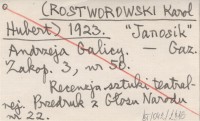 (ROSTWOROWSKI Karol
Hubert) 1923. "Janosik"
Andrzeja Galicy. — Gaz.
Zakop. 3, nr 50.
Recenzja sztuki teatral-
nej. Przedruk z Głosu Narodu
nr 22.